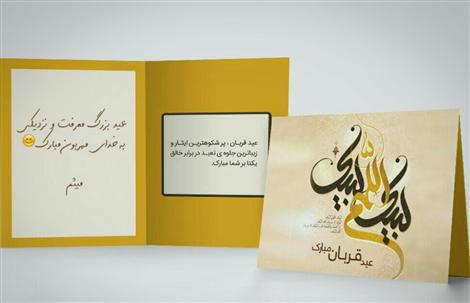 عید بزرگ معرفت و نزدیکی
به خدای مهربون مبارک 😊
میثم
عید قربان ، پر شکوهترین ایثار و
زیباترین جلوه ی تعبد در برابر خالق
یکتا بر شما مبارک.
لبیک اللهم لبیک
عید قربان مبارک